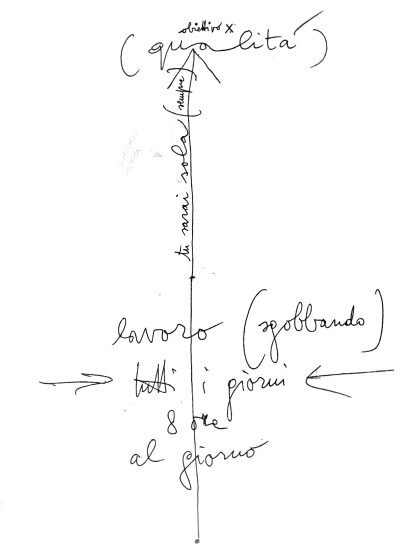 obiettivo x
(qualità)
tu sarai sola (sempre)
lavoro (sgobbando)
tutti i giorni
8 ore
al giorno